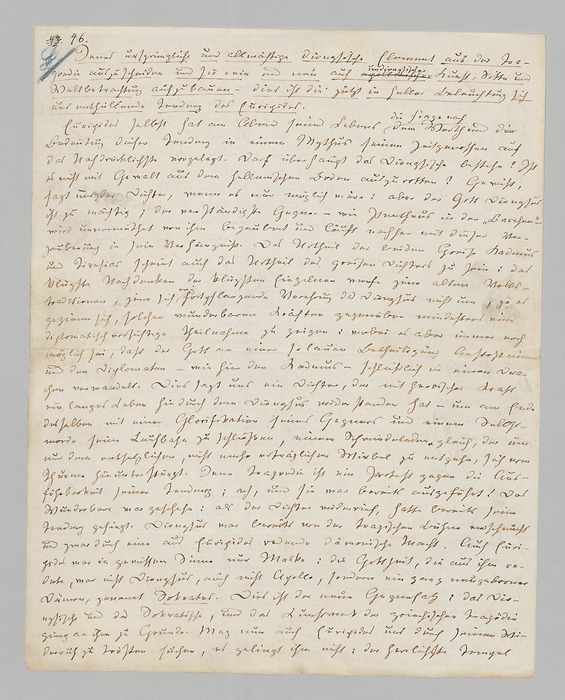 46.
Jenes ursprüngliche und allmächtige dionysische Element aus der Tra-
gödie auszuscheiden und sie rein und neu auf undionysischer Kunst, Sitte und
Weltbetrachtung aufzubauen – dies ist die jetzt in heller Beleuchtung sich
uns enthüllende Tendenz des Euripides.
Euripides selbst hat am Abend seines Lebens die Frage nach dem Werth und der
Bedeutung dieser Tendenz in einem Mythus seinen Zeitgenossen auf
das Nachdrücklichste vorgelegt. Darf überhaupt das Dionysische bestehn? Ist
es nicht mit Gewalt aus dem hellenischen Boden auszurotten? Gewiß,
sagt uns der Dichter, wenn es nur möglich wäre: aber der Gott Dionysus
ist zu mächtig; der verständigste Gegner – wie Pentheus in den „Bacchen" –
wird unvermuthet von ihm bezaubert und läuft nachher mit dieser Ver-
zauberung in sein Verhängniß. Das Urtheil der beiden Greise Kadmus
und Tiresias scheint auch das Urtheil des greisen Dichters zu sein: das
klügste Nachdenken der klügsten Einzelnen werfe jene alten Volks-
traditionen, jene sich fortpflanzende Verehrung des Dionysus nicht um; ja es
gezieme sich, solchen wunderbaren Kräften gegenüber mindestens eine
diplomatisch vorsichtige Theilnahme zu zeigen: wobei es aber immer noch
möglich sei, daß der Gott an einer so lauen Betheiligung Anstoß nimmt
und den Diplomaten – wie hier den Kadmus – schließlich in einen Dra-
chen verwandelt. Dies sagt uns ein Dichter, der mit heroischer Kraft
ein langes Leben hindurch dem Dionysus widerstanden hat – um am Ende
desselben mit einer Glorifikation seines Gegners und einem Selbst-
morde seine Laufbahn zu schließen, einem Schwindelnden gleich, der um
nur dem entsetzlichen, nicht mehr erträglichen Wirbel zu entgehn, sich vom
Thurme hinunterstürzt. Jene Tragödie ist ein Protest gegen die Aus-
führbarkeit seiner Tendenz; ach, und sie war bereits ausgeführt! Das
Wunderbare war geschehn: als der Dichter widerrief, hatte bereits seine
Tendenz gesiegt. Dionysus war bereits von der tragischen Bühne verscheucht
und zwar durch eine aus Euripides redende dämonische Macht. Auch Euri-
pides war in gewissem Sinne nur Maske: die Gottheit, die aus ihm re-
dete, war nicht Dionysus, auch nicht Apollo, sondern ein ganz neugeborner
Dämon, genannt Sokrates. Dies ist der neue Gegensatz: das Dio-
nysische und das Sokratische, und das Kunstwerk der griechischen Tragödie
gieng an ihm zu Grunde. Mag nun auch Euripides uns durch seinen Wi-
derruf zu trösten suchen, es gelingt ihm nicht: der herrlichste Tempel